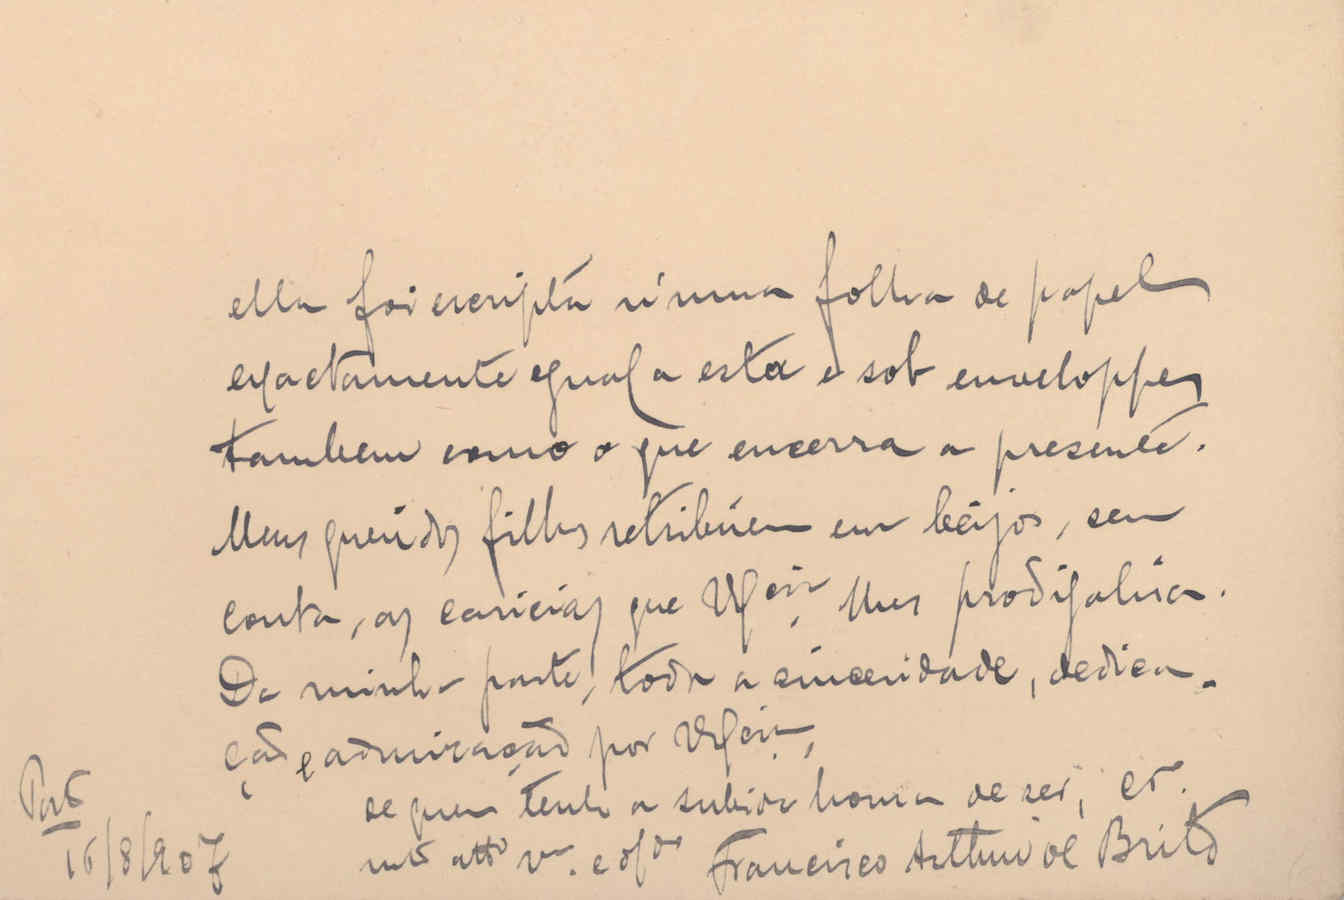 ella foi escripta n'uma folha de papel
exactamente egual a esta e sob enveloppes
tambem como o que encerra a presente.
Meus queridos filhos retribúem em beijos, sem
conta, as caricias que V. Ex.cia lhes prodigalisa.
Da minha parte, toda a sinceridade, dedica-
ção e admiração por V. Ex.cia,
de quem tenho a subida honra de ser,
m.to att.o v.or e
Francisco Arthur de Brito
Porto
16/8/907